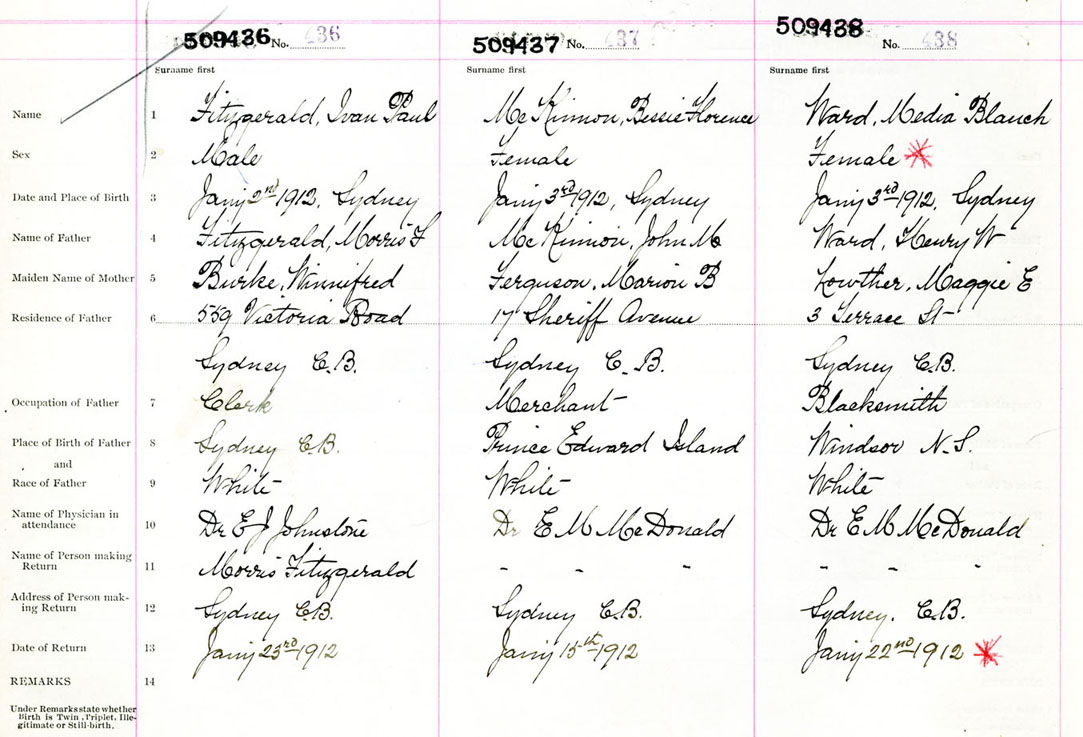 509436 No. 436 509437 No. 437 509438 No. 438
Surname first Surname first Surname first
Name 1 Fitzgerald, Ivan Paul Mc Kinnon, Bessie Florence Ward, Media Blanch
Sex 2 Male Female Female
Date and Place of Birth 3 Jany 2nd 1912, Sydney Jany 3rd 1912, Sydney Jany 3rd 1912, Sydney
Name of Father 4 Fitzgerald, Morris F Mc Kinnon, John M Ward, Henry W
Maiden Name of Mother 5 Burke, Winnifred Ferguson, Marion B Lowther, Maggie E
Residence of Father 6 559 Victoria Road 17 Sheriff Avenue 3 Terrace St
Sydney C.B. Sydney C.B. Sydney C.B.
Occupation of Father 7 Clerk Merchant Blacksmith
Place of Birth of Father 8 Sydney C.B. Prince Edward Island Windsor N.S.
and
Race of Father 9 White White White
Name of Physician in
attendance 10 Dr E J Johnstone Dr E M McDonald Dr E M McDonald
Name of Person making
Return 11 Morris Fitzgerald " " " " " "
Address of Person mak-
ing Return 12 Sydney C.B. Sydney C.B. Sydney, C.B.
Date of Return 13 Jany 23rd 1912 Jany 15th 1912 Jany 22nd 1912
REMARKS 14
Under Remarks state whether
Birth is Twin, Triplet, Ille-
gitimate or Still-birth.